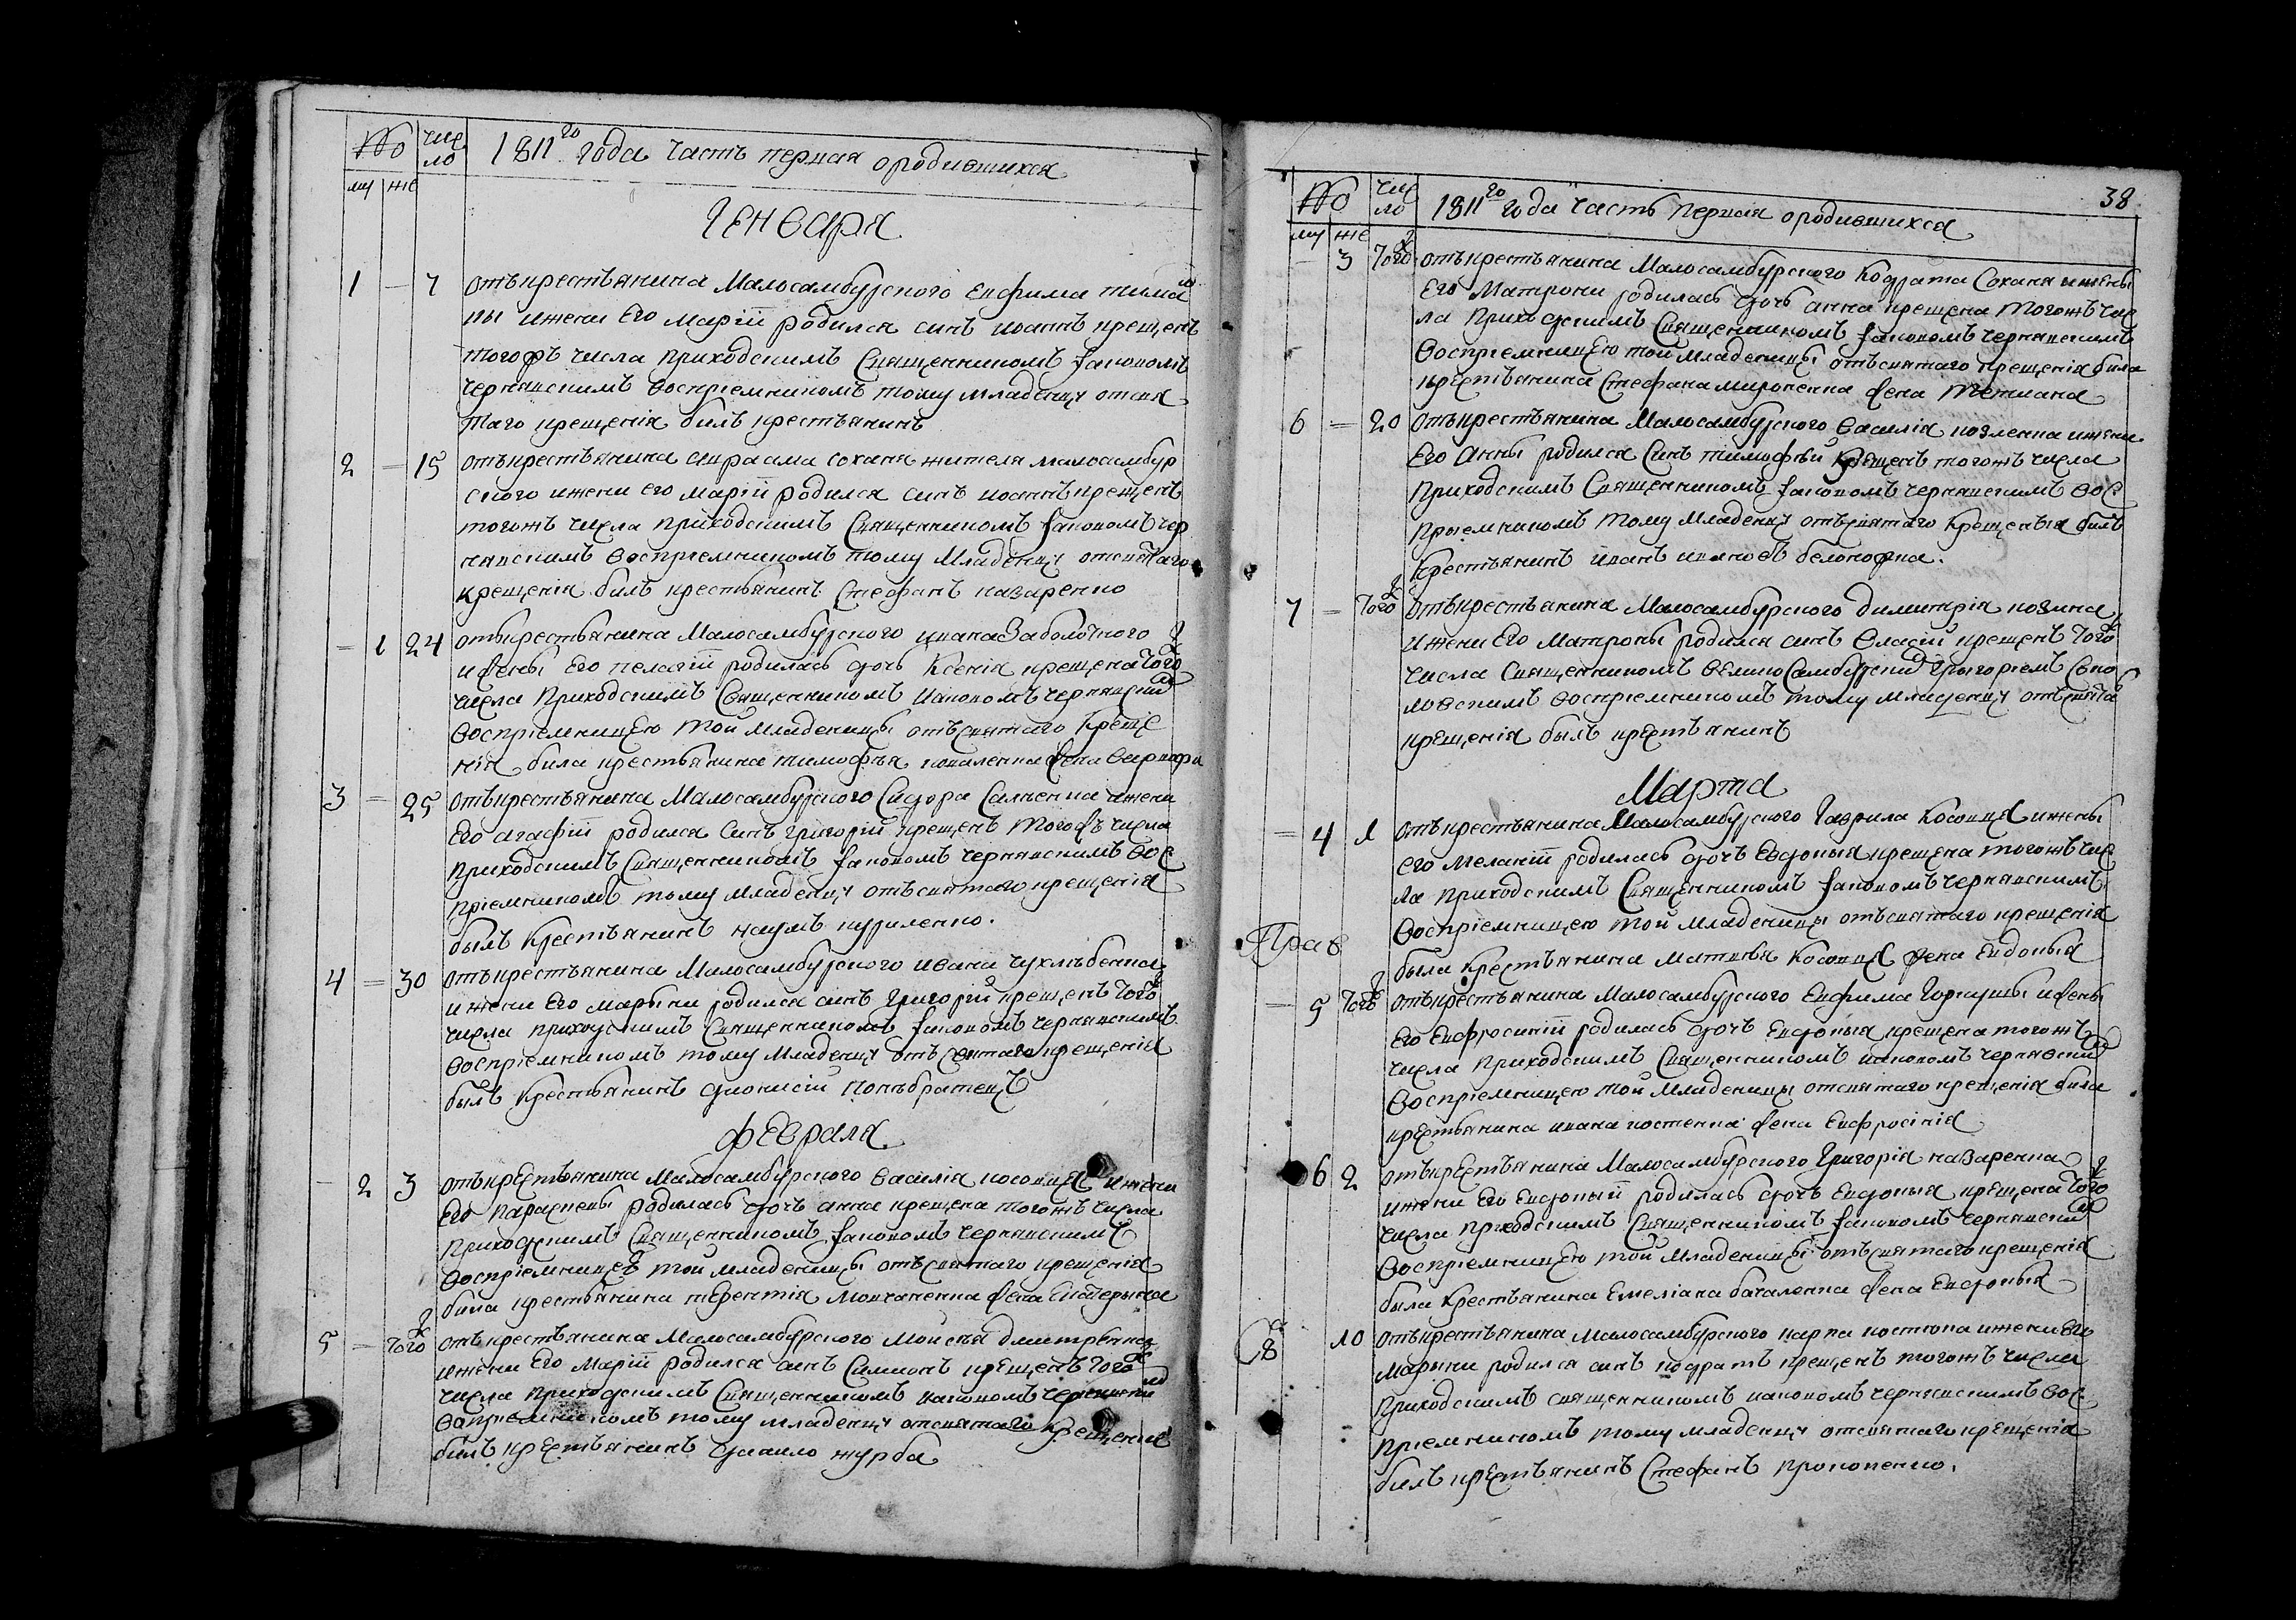 № чис
ло 1811го года часть первая о родившихся
му же
Генваря
1 – 7 отъ крестьянина Малосамбурского Евфима
ны и жени Его Маріи родился синъ Иоаннъ крещенъ
тогожъ числа приходскимъ Священникомъ Іаковомъ
Чернявскимъ восприемникомъ тому младенцу от свя
таго крещенія билъ крестьянинъ
2 – 15 отъ крестьянина Авраама Соханя жителя малосамбур
ского и жени его Маріи родился синъ Иоаннъ крещенъ
тогожъ числа приходскимъ Священникомъ Іаковомъ Чер
нявскимъ восприемникомъ тому Младенцу от святаго
крещенія билъ крестьянинъ Стефанъ Назаренко
– 1 24 отъ крестьянина Малосамбурского Ивана Заболотного
и жены Его Пелагіи родилась дочь Ксенія крещена того ж
числа Приходскимъ Священникомъ Иаковомъ Чернявским
восприемницею той младеницы отъ святаго креще
нія била крестьянина Тимофея Коваленка жена Варвара
3 – 25 отъ крестьянина Малосамбурского Сидора и жени
Его Агафіи родился Синъ Григорій крещенъ тогожъ числа
приходскимъ Священникомъ Іаковомъ Чернявскимъ вос
приемникомъ тому младенцу отъ святаго крещенія
былъ Крестьянинъ Наумъ Куриленко.
4 – 30 отъ крестьянина Малосамбурского Ивана Чухлебенка
и жени Его Марыни родился синъ Григорій крещенъ того ж
числа приходскимъ Священникомъ Іаковомъ Чернявскимъ
восприемникомъ тому Младенцу отъ святаго крещенія
былъ Крестьянинъ Дионисій
Февраля
– 2 3 отъ крестьянина Малосамбурского Василія Косовца и жени
Его Параскевы родилась дочь Анна крещена тогожъ числа
приходскимъ Священникомъ Іаковомъ Чернявскимъ
восприемницею той младеницы отъ святаго крещенія
била крестьянина Терентія жена Екатерына
5 – того ж отъ крестьянина Малосамбурского Мойсея Дмитренка
и жени Его Маріи родился синъ Симионъ крещенъ того ж
числа приходскимъ Священникомъ Иаковомъ Чернявским
восприемникомъ тому младенцу от святаго Крещенія
билъ крестьянинъ Данило Журба
38
№ чис
ло 1811го года часть первая о родившихся
му же
– 3 того ж отъ крестьянина Малосамбурского Кодрата Соханя и жены
Его Матрони родилась дочь Анна крещена тогожъ чис
ла приходскимъ Священникомъ Іаковомъ Чернявскимъ
восприемницею той младеницы отъ святаго крещенія била
крестьянина Стефана Мироненка жена Тетиана
6 – 20 отъ крестьянина Малосамбурского Василія Козленка и жени
Его Анны родился Синъ Тимофей Крещенъ тогожъ числа
приходскимъ Священникомъ Іаковомъ Чернявскимъ вос
приемникомъ тому Младенцу отъ святаго Крещенья билъ
Крестьянинъ Иванъ Ивановъ
7 – того ж отъ крестьянина Малосамбурского Димитрія
и жени Его Матроны родился синъ Власій крещенъ того ж
числа Священникомъ Великосамбурским Григоріемъ
восприемникомъ тому младенцу отъ свята
крещенія былъ крестьянинъ
Марта
– 4 1 отъ крестьянина Малосамбурского Гаврила Косовца и жены
его Меланіи родилась дочь Евдокия крещена тогожъ чис
ла приходскимъ Священникомъ Іаковомъ Чернявскимъ
восприемницею той младеницы отъ святаго крещенія
была Крестьянина Матвея Косовца жена Евдокия
Прав
– 5 того ж отъ крестьянина Малосамбурского Евфима и жены
Его Евфросиніи родилась дочь Евдокия крещена тогожъ
числа приходскимъ Священникомъ Иаковомъ Чернявским
восприемницею той младеницы от святаго крещенія била
крестьянина Ивана Костенка жена Евфросинія
6 2 отъ крестьянина Малосамбурского Григорія Назаренка
и жени Его Евдокіи родилась дочь Евдокия крещена того ж
числа приходскимъ Священникомъ Іаковомъ Чернявским
восприемницею той младеницы отъ святаго крещенія
была Крестьянина Емеліана Бакаленка жена Евдокия
8 10 отъ крестьянина Малосамбурского Карпа Костюка и жени Его
Марыни родился синъ Кодратъ крещенъ тогожъ числа
приходскимъ священникомъ Иаковомъ Чернявскимъ вос
приемникомъ тому младенцу от святаго крещенія
билъ крестьянинъ Стефанъ Прокопенко.